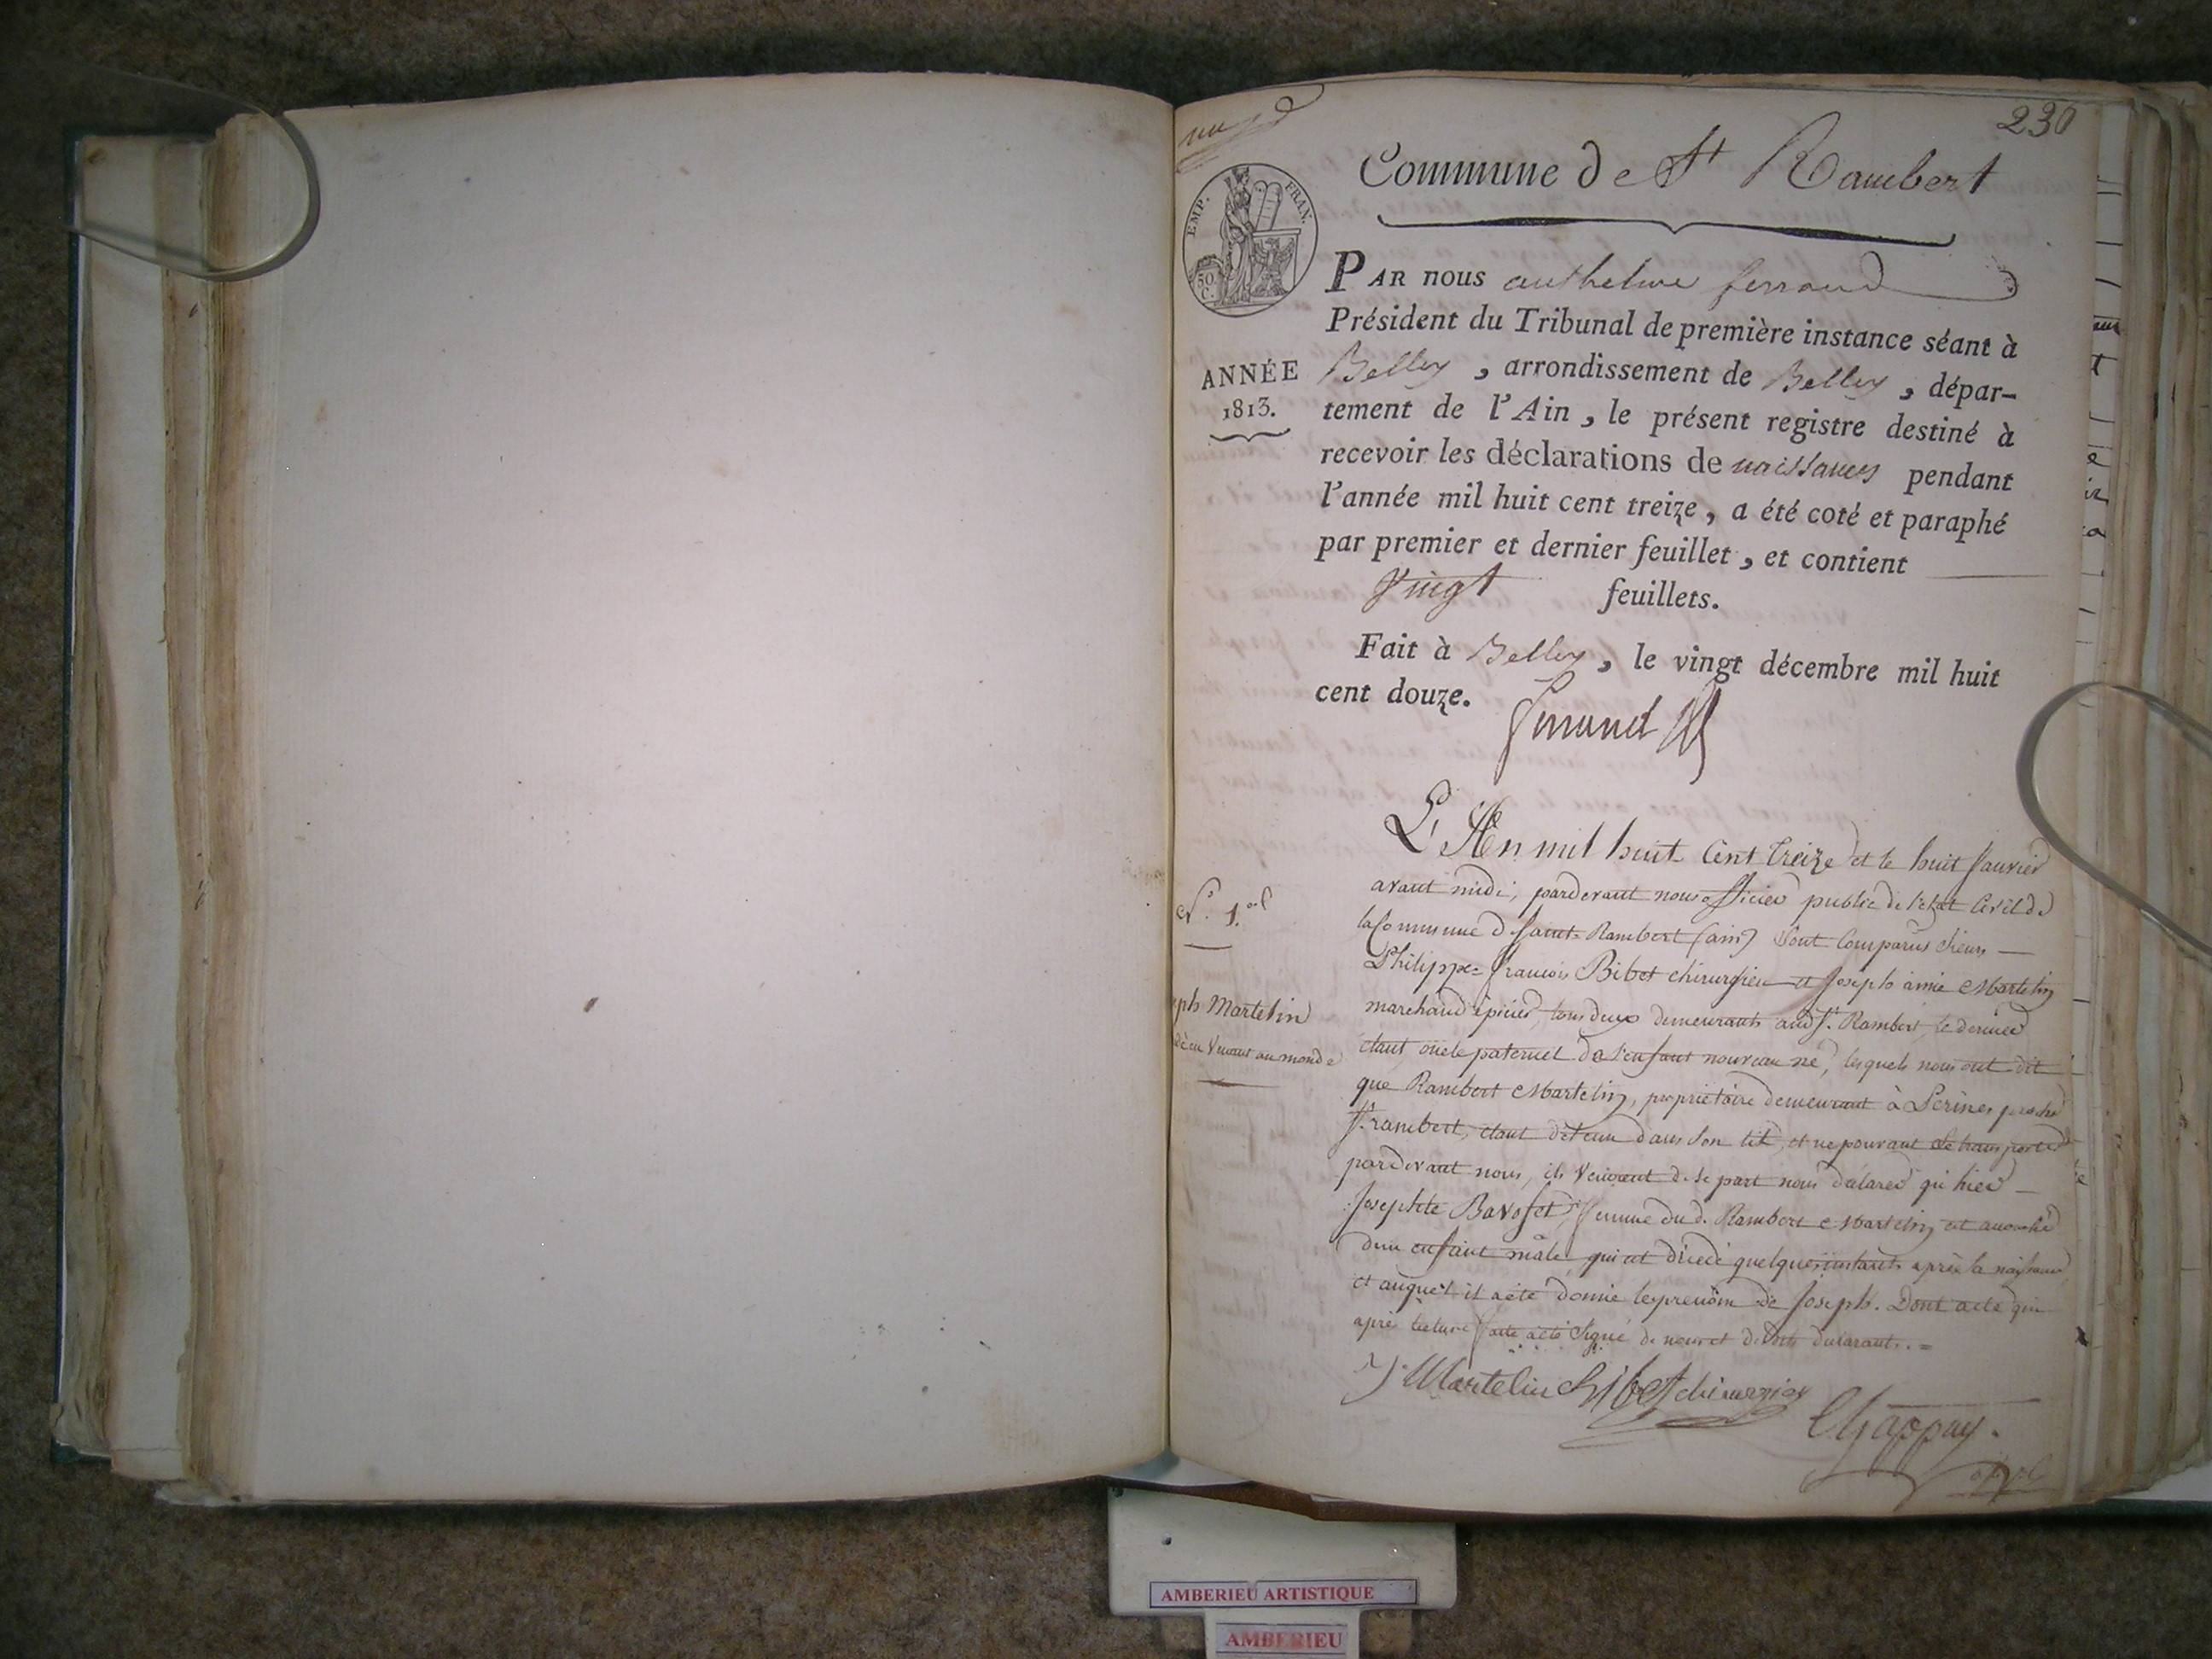 230
Commune de St Rambert
EMP. FRAN.
50 C.
ANNÉE
1813.
PAR nous anthelme ferrand
Président du Tribunal de première instance séant à
Belley, arrondissement de Belley, dépar-
tement de l'Ain, le présent registre destiné à
recevoir les déclarations de naissances pendant
l'année mil huit cent treize, a été coté et paraphé
par premier et dernier feuillet, et contient
vingt feuillets.
Fait à Belley, le vingt décembre mil huit
cent douze.
ferrand
N.° 1.er
eph Martelin
en venant au monde
L'An mil huit Cent treize et le huit Janvier
avant midi, pardevant nous officier public de l'etat Civil de
la Commune de Saint-Rambert (ain) sont Comparus sieurs
Philippe-françois Bibet chirurgien et Joseph aimé Martelin
marchand épicier, tous deux demeurants aud St. Rambert, le dernier
étant oncle paternel de l'enfant nouveau né, lesquels nous ont dit
que Rambert Martelin, propriétaire demeurant à Serines proche
St. rambert, étant détenu dans son lit, et ne pouvant se transporter
pardevant nous, ils venoient de se part nous déclarer qu'hier
Josephte Bavoset, femme dud. Rambert Martelin est accouchée
d'un enfant mâle qui est décédé quelques instants après sa naissance
et auquel il a été donné le prenom de Joseph. Dont acte qui
après lecture faite a été signé de nous et desdits déclarants.
J. Martelin Bibet chirurgien
Chappuy.
AMBERIEU ARTISTIQUE
AMBERIEU